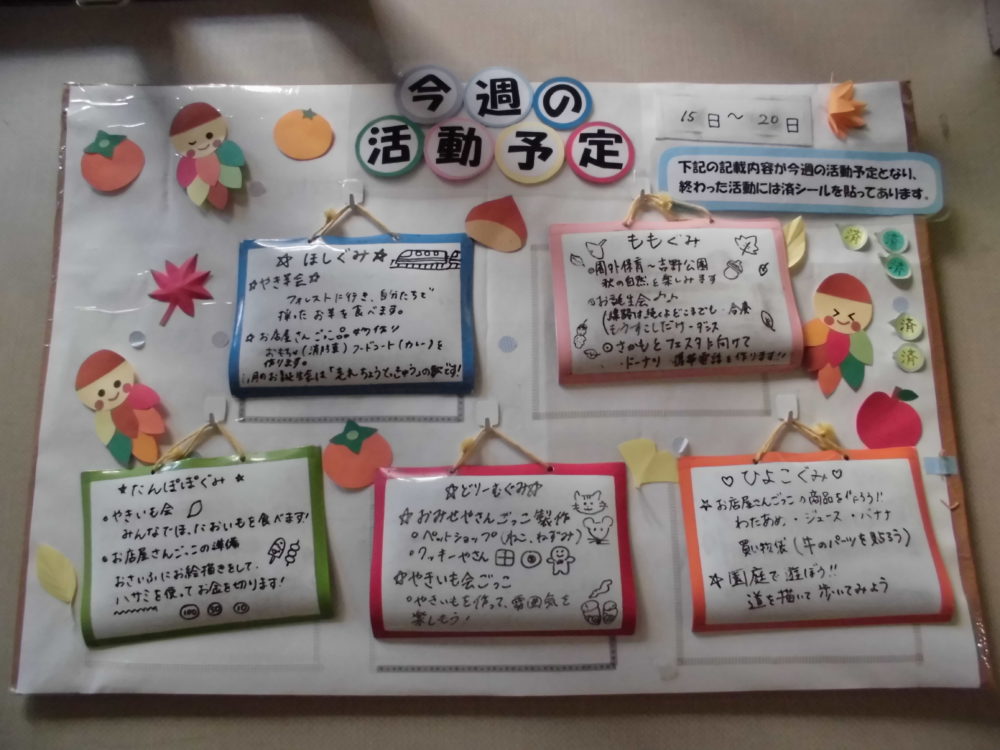 今週の
活動予定
15日〜20日
下記の記載内容が今週の活動予定となり、
終わった活動には済シールを貼ってあります。
済 済
済
済
済
☆ほしぐみ☆
☆やき芋会☆
フォレストに行き、自分たちで
掘ったお芋を食べます。
☆お店屋さんごっこ品物作り
おもちゃ(消防車)フードコート(カレー)を
作ります。
月のお誕生会は「走れちょうとっきゅう」の
です!
ももぐみ
園外保育〜吉野公園
秋の自然を楽しみます
お誕生会♪♪
線路は続くよどこまでも・合奏
もう少しだけ・ダンス
さかもとフェスタに向けて
・ドーナツ 携帯電話を作ります!!
★たんぽぽぐみ★
・やきいも会
みんなでほったおいもを食べます!
・お店屋さんごっこの準備
おさいふにお絵描きをして、
ハサミを使ってお金を切ります!
100 50 10
☆どりーむぐみ☆
☆おみせやさんごっこ製作
○ペットショップ(ねこ、ねずみ)
○クッキーやさん
☆やきいも会ごっこ
○やきいもを作って、雰囲気を
楽しもう!
♡ひよこぐみ♡
☆お店屋さんごっこの商品を作ろう!
わたあめ・ジュース・バナナ
買い物袋(牛のパーツを貼ろう)
☆園庭で遊ぼう!!
道を描いて歩いてみよう